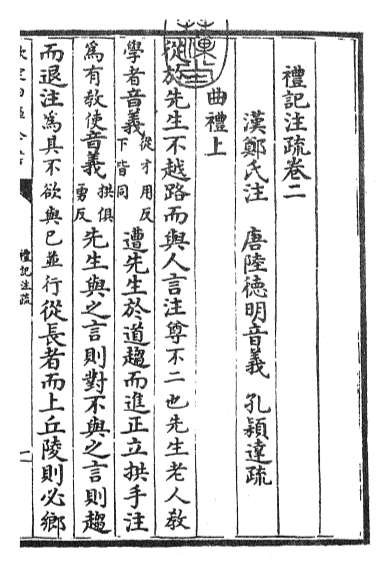 禮記注疏卷二
漢鄭氏注 唐陸徳明音義 孔穎達疏
曲禮上
從於先生不越路而與人言注尊不二也先生老人敎
學者音義從才用反下皆同遭先生於道趨而進正立拱手注
為有敎使音義拱俱勇反先生與之言則對不與之言則趨
而退注為其不欲與已並行從長者而上丘陵則必鄉
禮記注疏